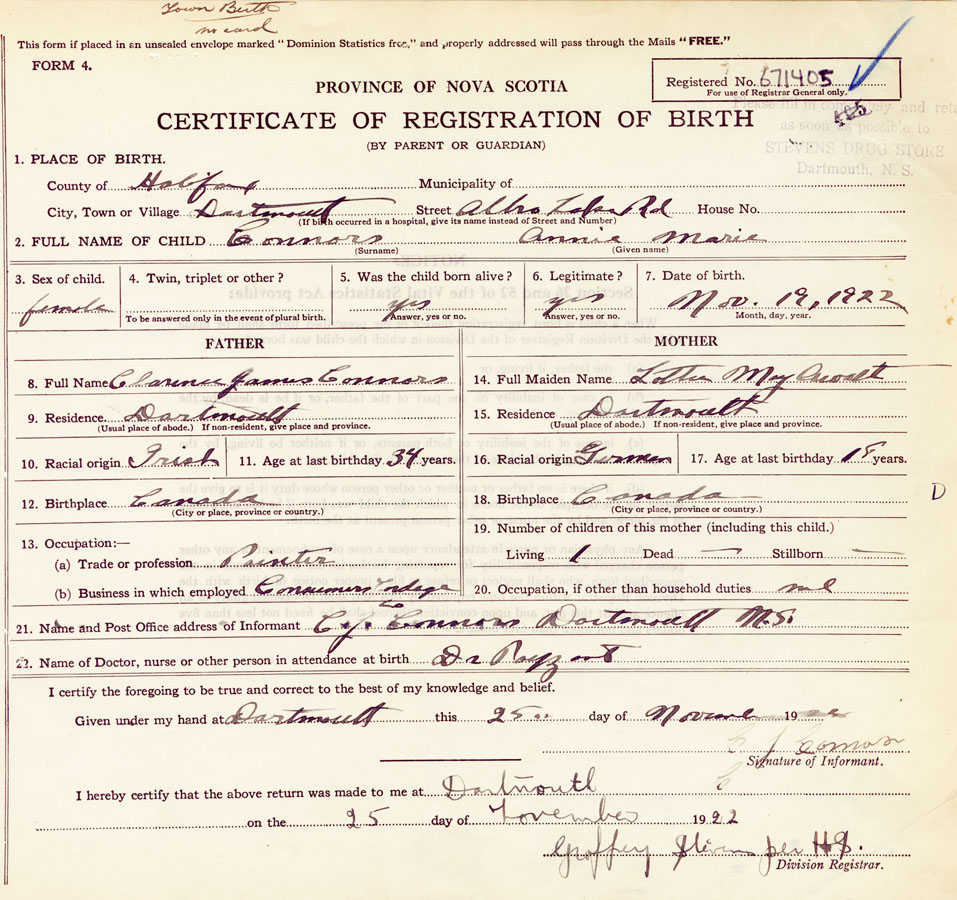 Town Birth
no card
This form if placed in an unsealed envelope marked "Dominion Statistics free," and properly addressed will pass through the Mails "FREE."
FORM 4.
Registered No. 671405
For use of Registrar General only.
PROVINCE OF NOVA SCOTIA
Please fill in completely and retu
CERTIFICATE OF REGISTRATION OF BIRTH
as soon as possible to
(BY PARENT OR GUARDIAN)
STEVENS DRUG STORE
Dartmouth, N. S.
1. PLACE OF BIRTH.
County of Halifax Municipality of
City, Town or Village Dartmouth Street Albro Lake Rd House No.
(If birth occurred in a hospital, give its name instead of Street and Number)
2. FULL NAME OF CHILD Connors Annie Marie
(Surname) (Given name)
3. Sex of child. 4. Twin, triplet or other? 5. Was the child born alive? 6. Legitimate? 7. Date of birth.
female yes yes Nov. 19, 1922
To be answered only in the event of plural birth. Answer, yes or no. Answer, yes or no. Month, day, year.
FATHER MOTHER
8. Full Name Clarence James Connors 14. Full Maiden Name May
9. Residence Dartmouth 15. Residence Dartmouth
(Usual place of abode.) If non-resident, give place and province. (Usual place of abode.) If non-resident, give place and province.
10. Racial origin Irish 11. Age at last birthday 34 years. 16. Racial origin German 17. Age at last birthday 18 years.
12. Birthplace Canada 18. Birthplace Canada
(City or place, province or country.) (City or place, province or country.)
D
19. Number of children of this mother (including this child.)
13. Occupation:—
Living 1 Dead — Stillborn —
(a) Trade or profession Painter
(b) Business in which employed Consumers Co 20. Occupation, if other than household duties nil
21. Name and Post Office address of Informant C. J. Connors Dartmouth N.S.
22. Name of Doctor, nurse or other person in attendance at birth Dr
I certify the foregoing to be true and correct to the best of my knowledge and belief.
Given under my hand at Dartmouth this 25 day of November 1922
C J Connors
Signature of Informant.
I hereby certify that the above return was made to me at Dartmouth
on the 25 day of November 1922
Geoffrey Stevens per HS.
Division Registrar.